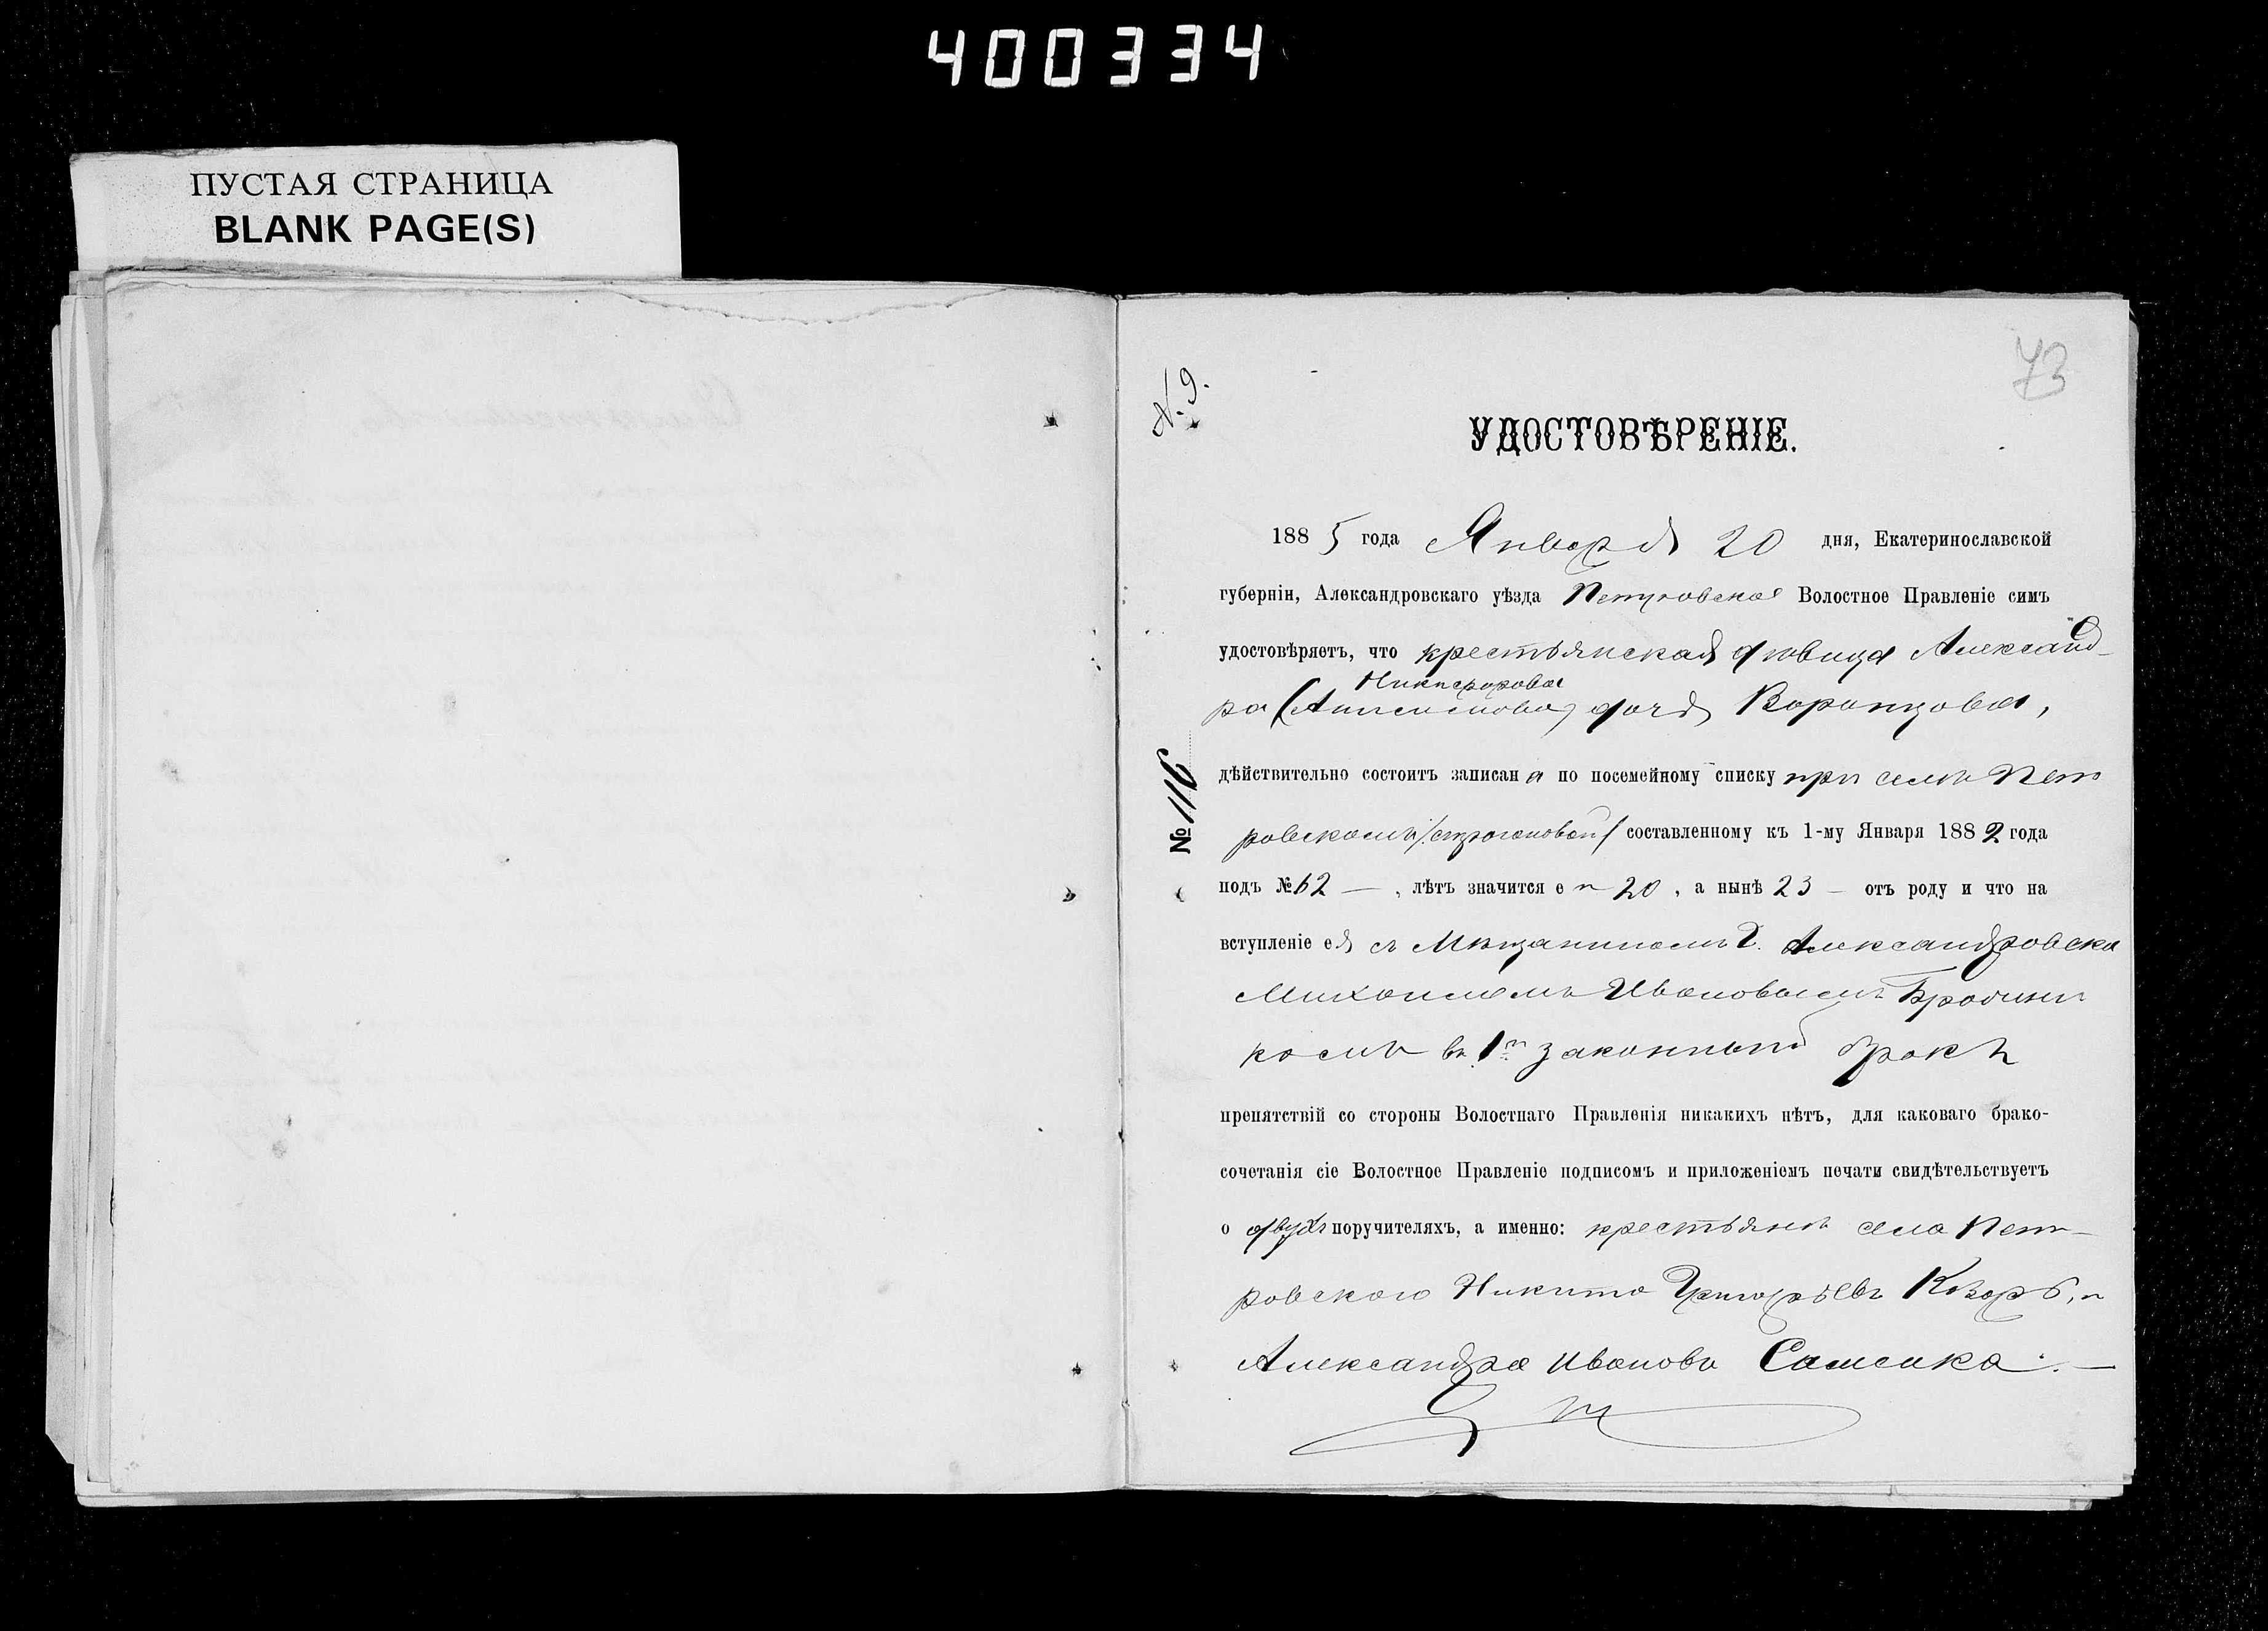 400334
ПУСТАЯ СТРАНИЦА
BLANK PAGE(S)
73
№ 9.
УДОСТОВѢРЕНІЕ.
1885 года Января 20 дня, Екатеринославской
губерніи, Александровскаго уѣзда Петровское Волостное Правленіе симъ
удостовѣряетъ, что крестьянская дѣвица Александ-
Никифорова
ра ( ) дочь Воронцова,
дѣйствительно состоитъ записана по посемейному списку при селѣ Пет
ровскомъ составленному къ 1-му Января 1882 года
№ 116
подъ №62 — , лѣтъ значится ей 20 , а нынѣ 23 — отъ роду и что на
вступленіе ея съ Мѣщаниномъ Г. Александровска
Михаиломъ Ивановымъ
комъ въ 1й законный бракъ
препятствій со стороны Волостнаго Правленія никакихъ нѣтъ, для каковаго брако-
сочетанія сіе Волостное Правленіе подписомъ и приложеніемъ печати свидѣтельствуетъ
о двухъ поручителяхъ, а именно: крестьянъ села Пет-
ровскаго Никита Григорьевъ и
Александра Иванова